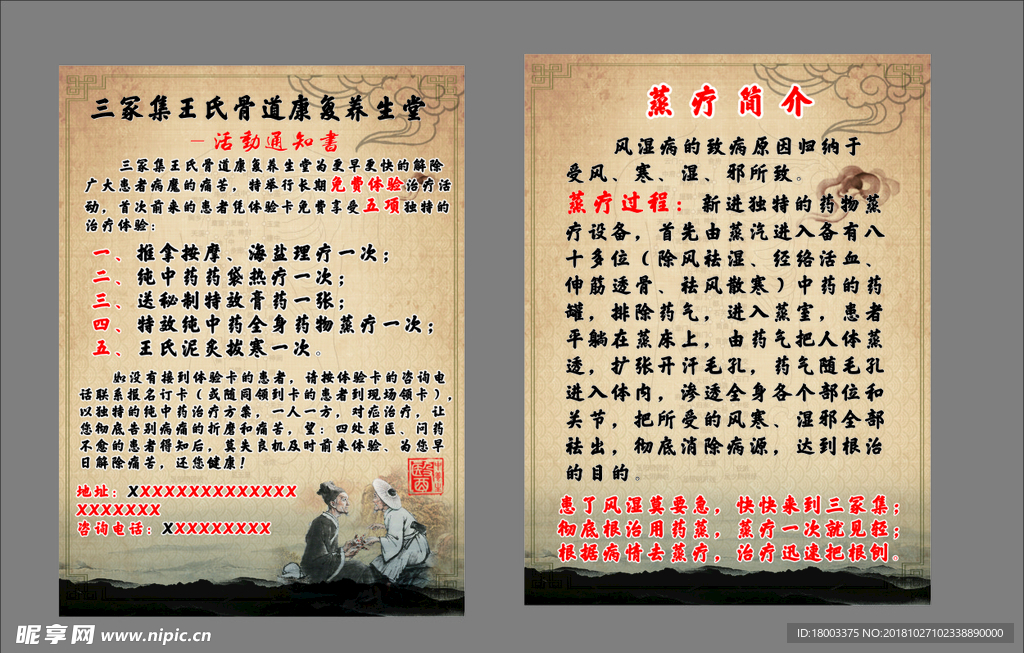 三冢集王氏骨道康复养生堂
—活動通知書
三冢集王氏骨道康复养生堂为更早更快的解除
广大患者病魔的痛苦，特举行长期免费体验治疗活
动，首次前来的患者凭体验卡免费享受五项独特的
治疗体验：
一、推拿按摩、海盐理疗一次；
二、纯中药药袋热疗一次；
三、送秘制特效膏药一张；
四、特效纯中药全身药物蒸疗一次；
五、王氏泥灸拔寒一次。
如没有接到体验卡的患者，请按体验卡的咨询电
话联系报名订卡（或随同领到卡的患者到现场领卡），
以独特的纯中药治疗方案，一人一方，对症治疗，让
您彻底告别病痛的折磨和痛苦，望：四处求医、问药
不愈的患者得知后，莫失良机及时前来体验、为您早
日解除痛苦，还您健康！
地址：XXXXXXXXXXXXXX
XXXXXXX
咨询电话：XXXXXXXXX
蒸疗简介
风湿病的致病原因归纳于
受风、寒、湿、邪所致。
蒸疗过程：新进独特的药物蒸
疗设备，首先由蒸汽进入备有八
十多位（除风祛湿、经络活血、
伸筋透骨、祛风散寒）中药的药
罐，排除药气，进入蒸室，患者
平躺在蒸床上，由药气把人体蒸
透，扩张开汗毛孔，药气随毛孔
进入体内，渗透全身各个部位和
关节，把所受的风寒、湿邪全部
祛出，彻底消除病源，达到根治
的目的。
患了风湿莫要急，快快来到三冢集；
彻底根治用药蒸，蒸疗一次就见轻；
根据病情去蒸疗，治疗迅速把根刨。
昵享网 www.nipic.cn
ID:18003375 NO:20181027102338890000